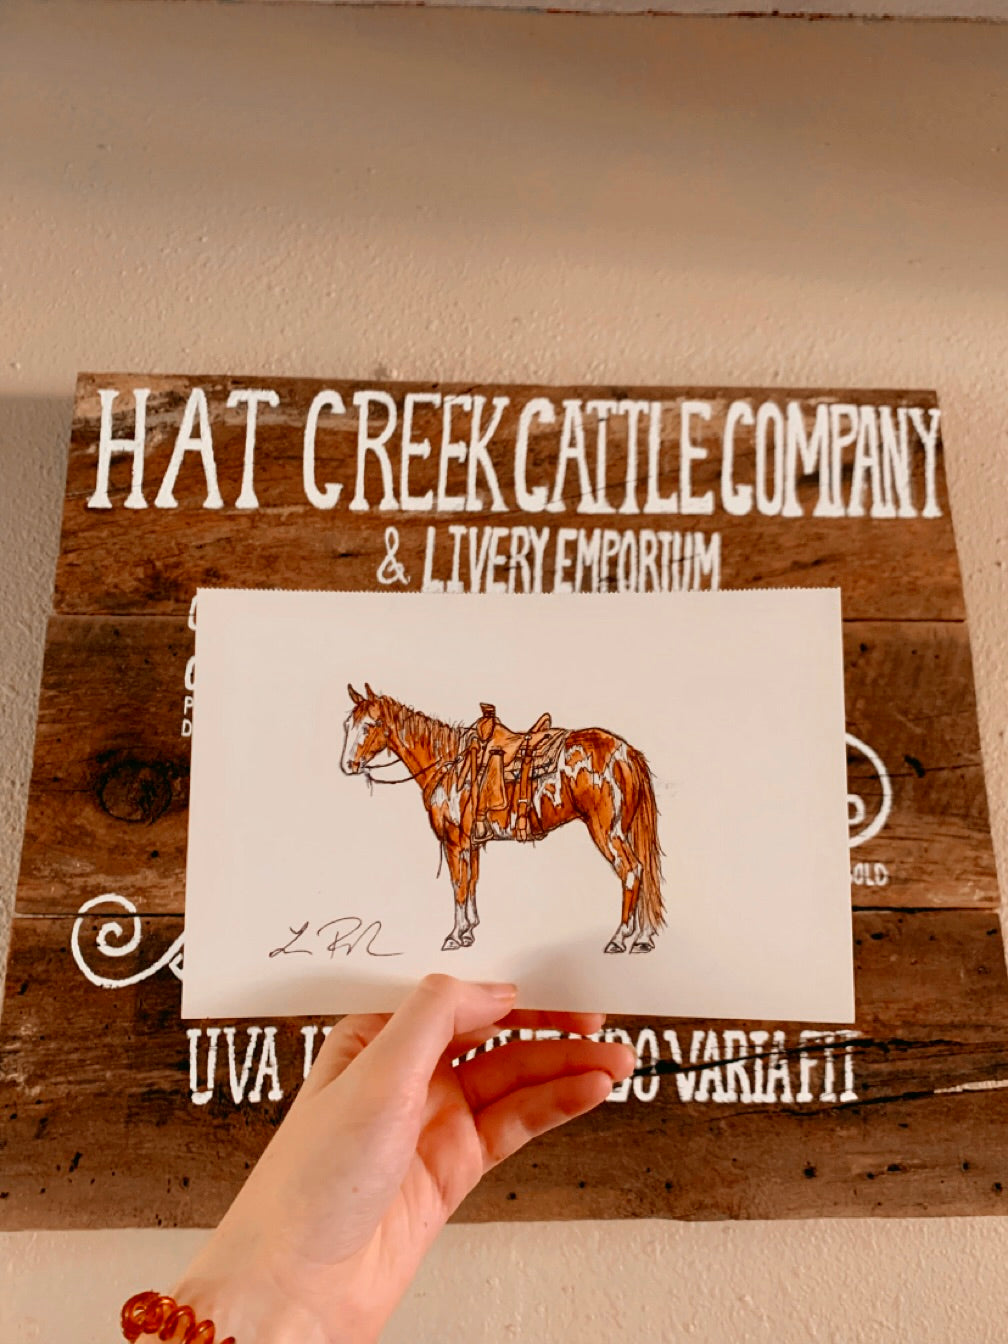 HAT CREEK CATTLE COMPANY
& LIVERY EMPORIUM
OLD
UVA VARIA FIT